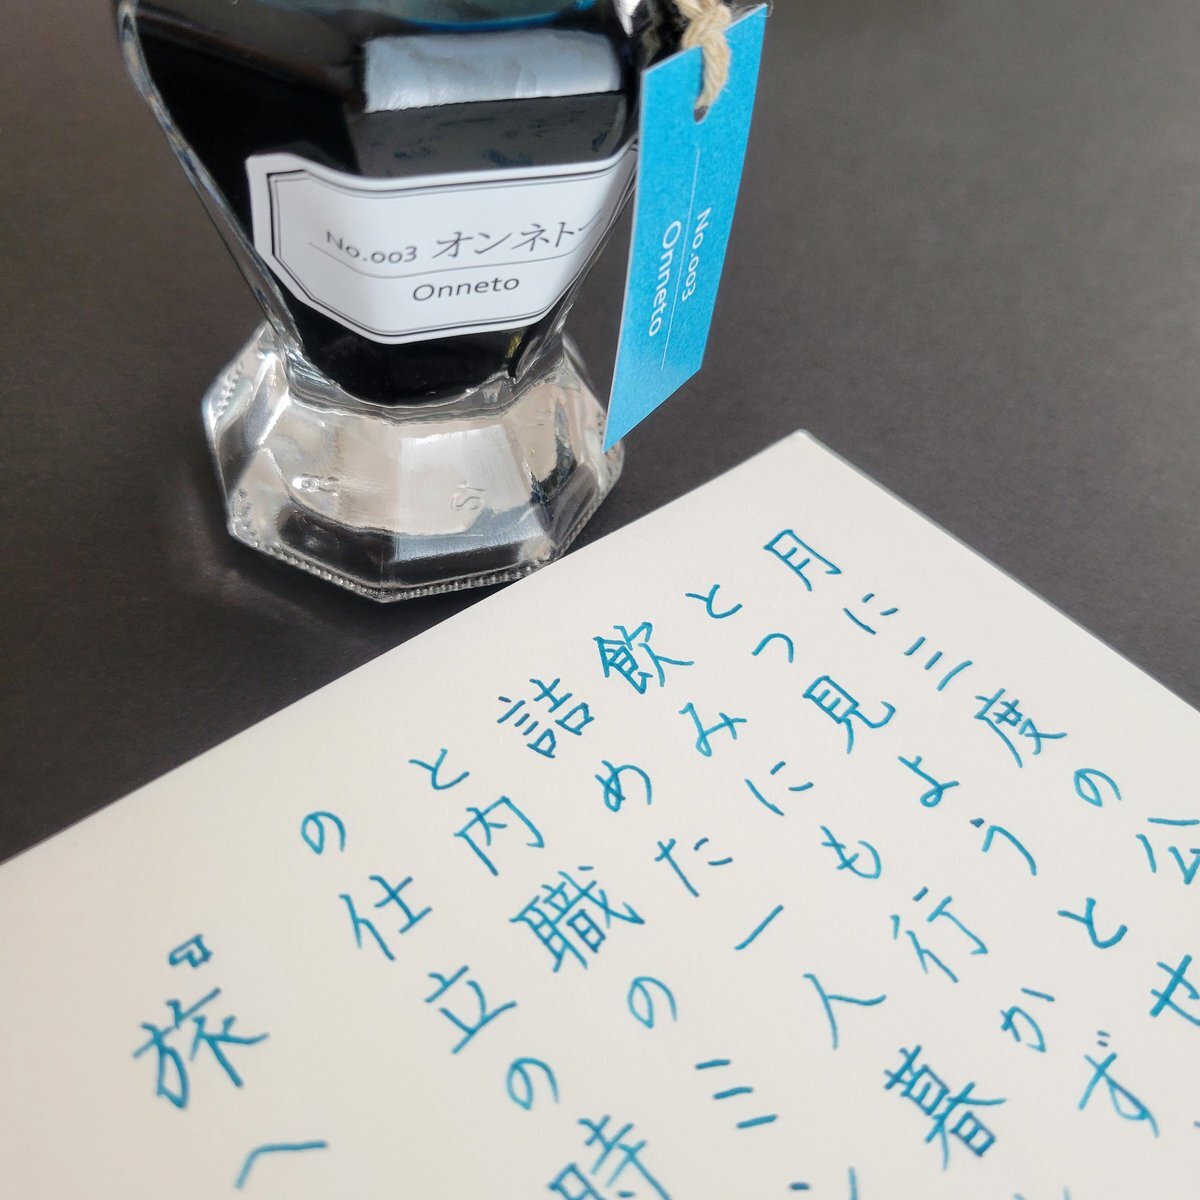 No.003 オンネトー
Onneto
No.003
Onneto
月に三度の公
とつ見ようとせ
飲みにも行かず
詰めた一人暮
と内職のミ
の仕立の時
『旅へ